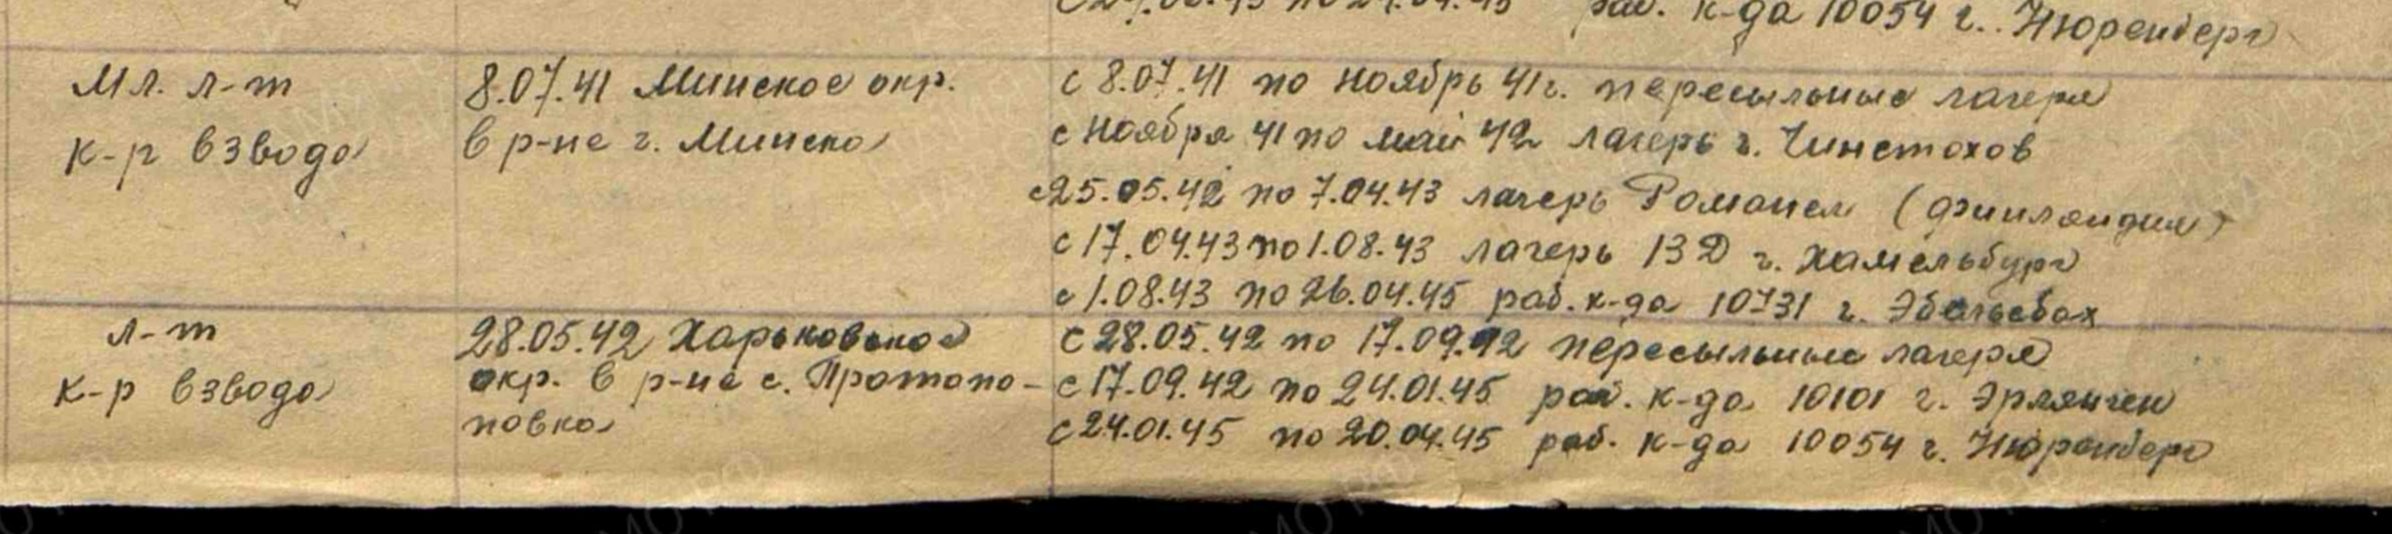 раб. к-да 10054 г. Нюренберг
Мл. л-т
к-р взвода
8.07.41 Минское окр.
в р-не г. Минска
с 8.07.41 по ноябрь 41 г. пересыльные лагеря
с ноября 41 по май 42 лагерь г. Чинстохов
с 25.05.42 по 7.04.43 лагерь (Финляндия)
с 17.04.43 по 1.08.43 лагерь 13Д г. Хамельбург
с 1.08.43 по 26.04.45 раб. к-да 10731 г. Эбельсбах
л-т
к-р взвода
28.05.42 Харьковское
окр. в р-не с. Протопо-
повка
с 28.05.42 по 17.09.42 пересыльные лагеря
с 17.09.42 по 24.01.45 раб. к-да 10101 г. Эрлянген
с 24.01.45 по 20.04.45 раб. к-да 10054 г. Нюренберг